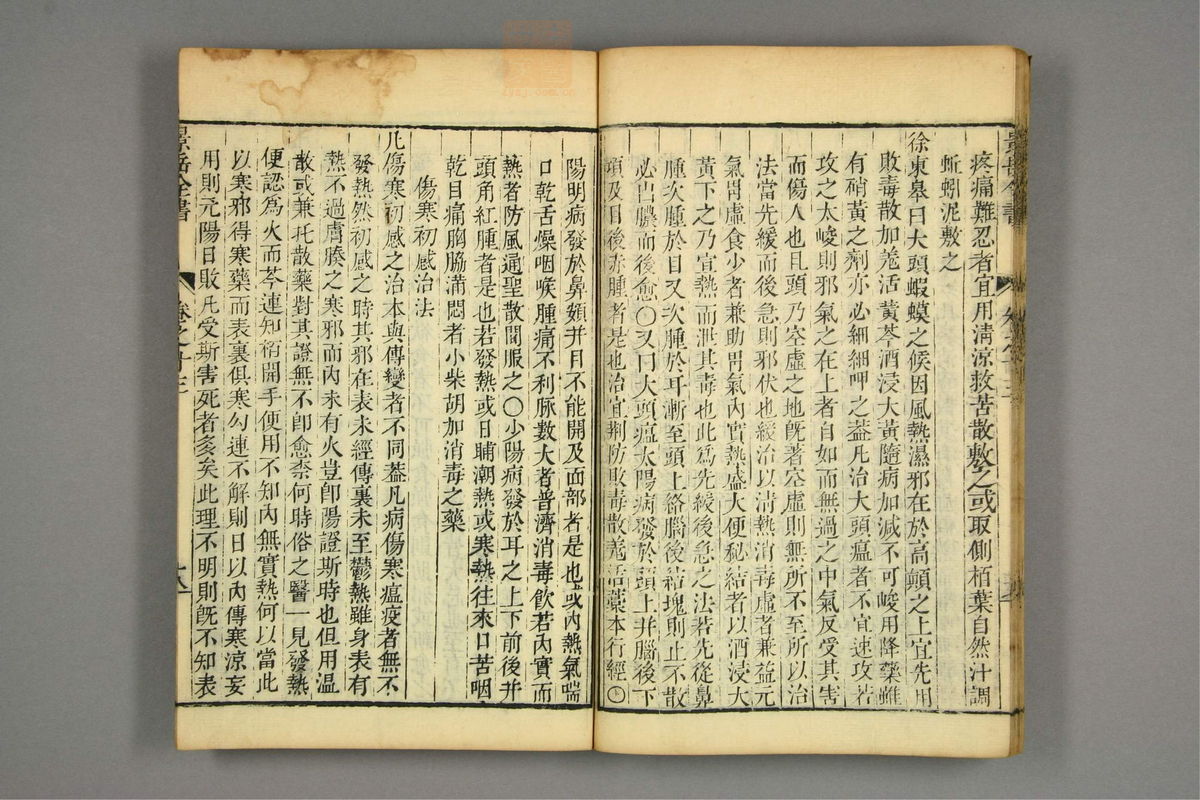 景岳全書
疼痛難忍者宜用清涼救苦散敷之或取側栢葉自然汁調
蚯蚓泥敷之
徐東皋曰大頭蝦蟆之候因風熱濕邪在於高顛之上宜先用
敗毒散加羗活黃芩酒浸大黃隨病加減不可峻用降藥雖
有硝黃之劑亦必細細呷之葢凡治大頭瘟者不宜速攻若
攻之太峻則邪氣之在上者自如而無過之中氣反受其害
而傷人也且頭乃空虛之地旣著空虛則無所不至所以治
法當先緩而後急則邪伏也緩治以清熱消毒虛者兼益元
氣胃虛食少者兼助胃氣內實熱盛大便秘結者以酒浸大
黃下之乃宣熱而泄其毒也此爲先緩後急之法若先從鼻
腫次腫於目又次腫於耳漸至頭上絡腦後結塊則止不散
必出膿而後愈○又曰大頭瘟太陽病發於頭上并腦後下
項及目後赤腫者是也治宜荆防敗毒散羗活藁本行經○
陽明病發於鼻頞并目不能開及面部者是也或內熱氣喘
口乾舌燥咽喉腫痛不利脉數大者普濟消毒飲若內實而
熱者防風通聖散間服之○少陽病發於耳之上下前後并
頭角紅腫者是也若發熱或日晡潮熱或寒熱往來口苦咽
乾目痛胸脇滿悶者小柴胡加消毒之藥
傷寒初感治法
凡傷寒初感之治本與傳變者不同葢凡病傷寒瘟疫者無不
發熱然初感之時其邪在表未經傳裏未至鬱熱雖身表有
熱不過膚腠之寒邪而內未有火豈卽陽證斯時也但用温
散或兼托散藥對其證無不卽愈柰何時俗之醫一見發熱
便認爲火而芩連知稍開手便用不知內無實熱何以當此
以寒邪得寒藥而表裏俱寒勾連不解則日以內傳寒涼妄
用則元陽日敗凡受斯害死者多矣此理不明則旣不知表
景岳全書
卷之十三